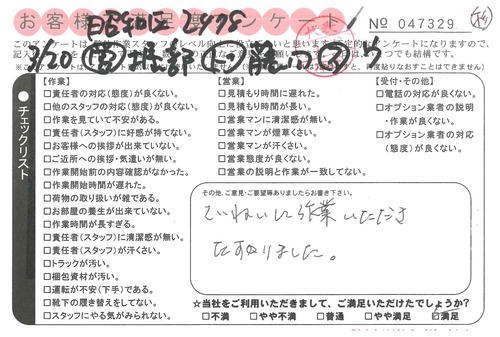 お客様 満足度アンケート
№ 047329
昭和区 2478
このアンケートは
3/20
チェックリスト
【作業】
□責任者の対応(態度)が良くない。
□他のスタッフの対応(態度)が良くない。
□作業を見ていて不安がある。
□責任者(スタッフ)に好感が持てない。
□お客様への挨拶が出来ていない。
□ご近所への挨拶・気遣いが無い。
□作業開始前の内容確認がなかった。
□作業開始時間が遅れた。
□荷物の取り扱いが雑である。
□お部屋の養生が出来ていない。
□作業時間が長すぎる。
□責任者(スタッフ)に清潔感が無い。
□責任者(スタッフ)が汗くさい。
□トラックが汚い。
□梱包資材が汚い。
□運転が不安(下手)である。
□靴下の履き替えをしてない。
□スタッフにやる気がみられない。
【営業】
□見積もりに遅れた。
□見積もり時間が長い。
□営業マンに清潔感が無い。
□営業マンが煙草くさい。
□営業マンが汗くさい。
□営業態度が良くない。
□営業の説明と作業が一致してない。
【受付・その他】
□電話の対応が良くない。
□オプション業者の説明
・作業が良くない。
□オプション業者の対応
(態度)が良くない。
その他、ご意見・ご要望等ありましたらお書き下さい。
ていねいに作業いただき
たすかりました。
☆当社をご利用いただきまして、ご満足いただけたでしょうか?
□不満 □やや不満 □普通 □やや満足 ☑満足